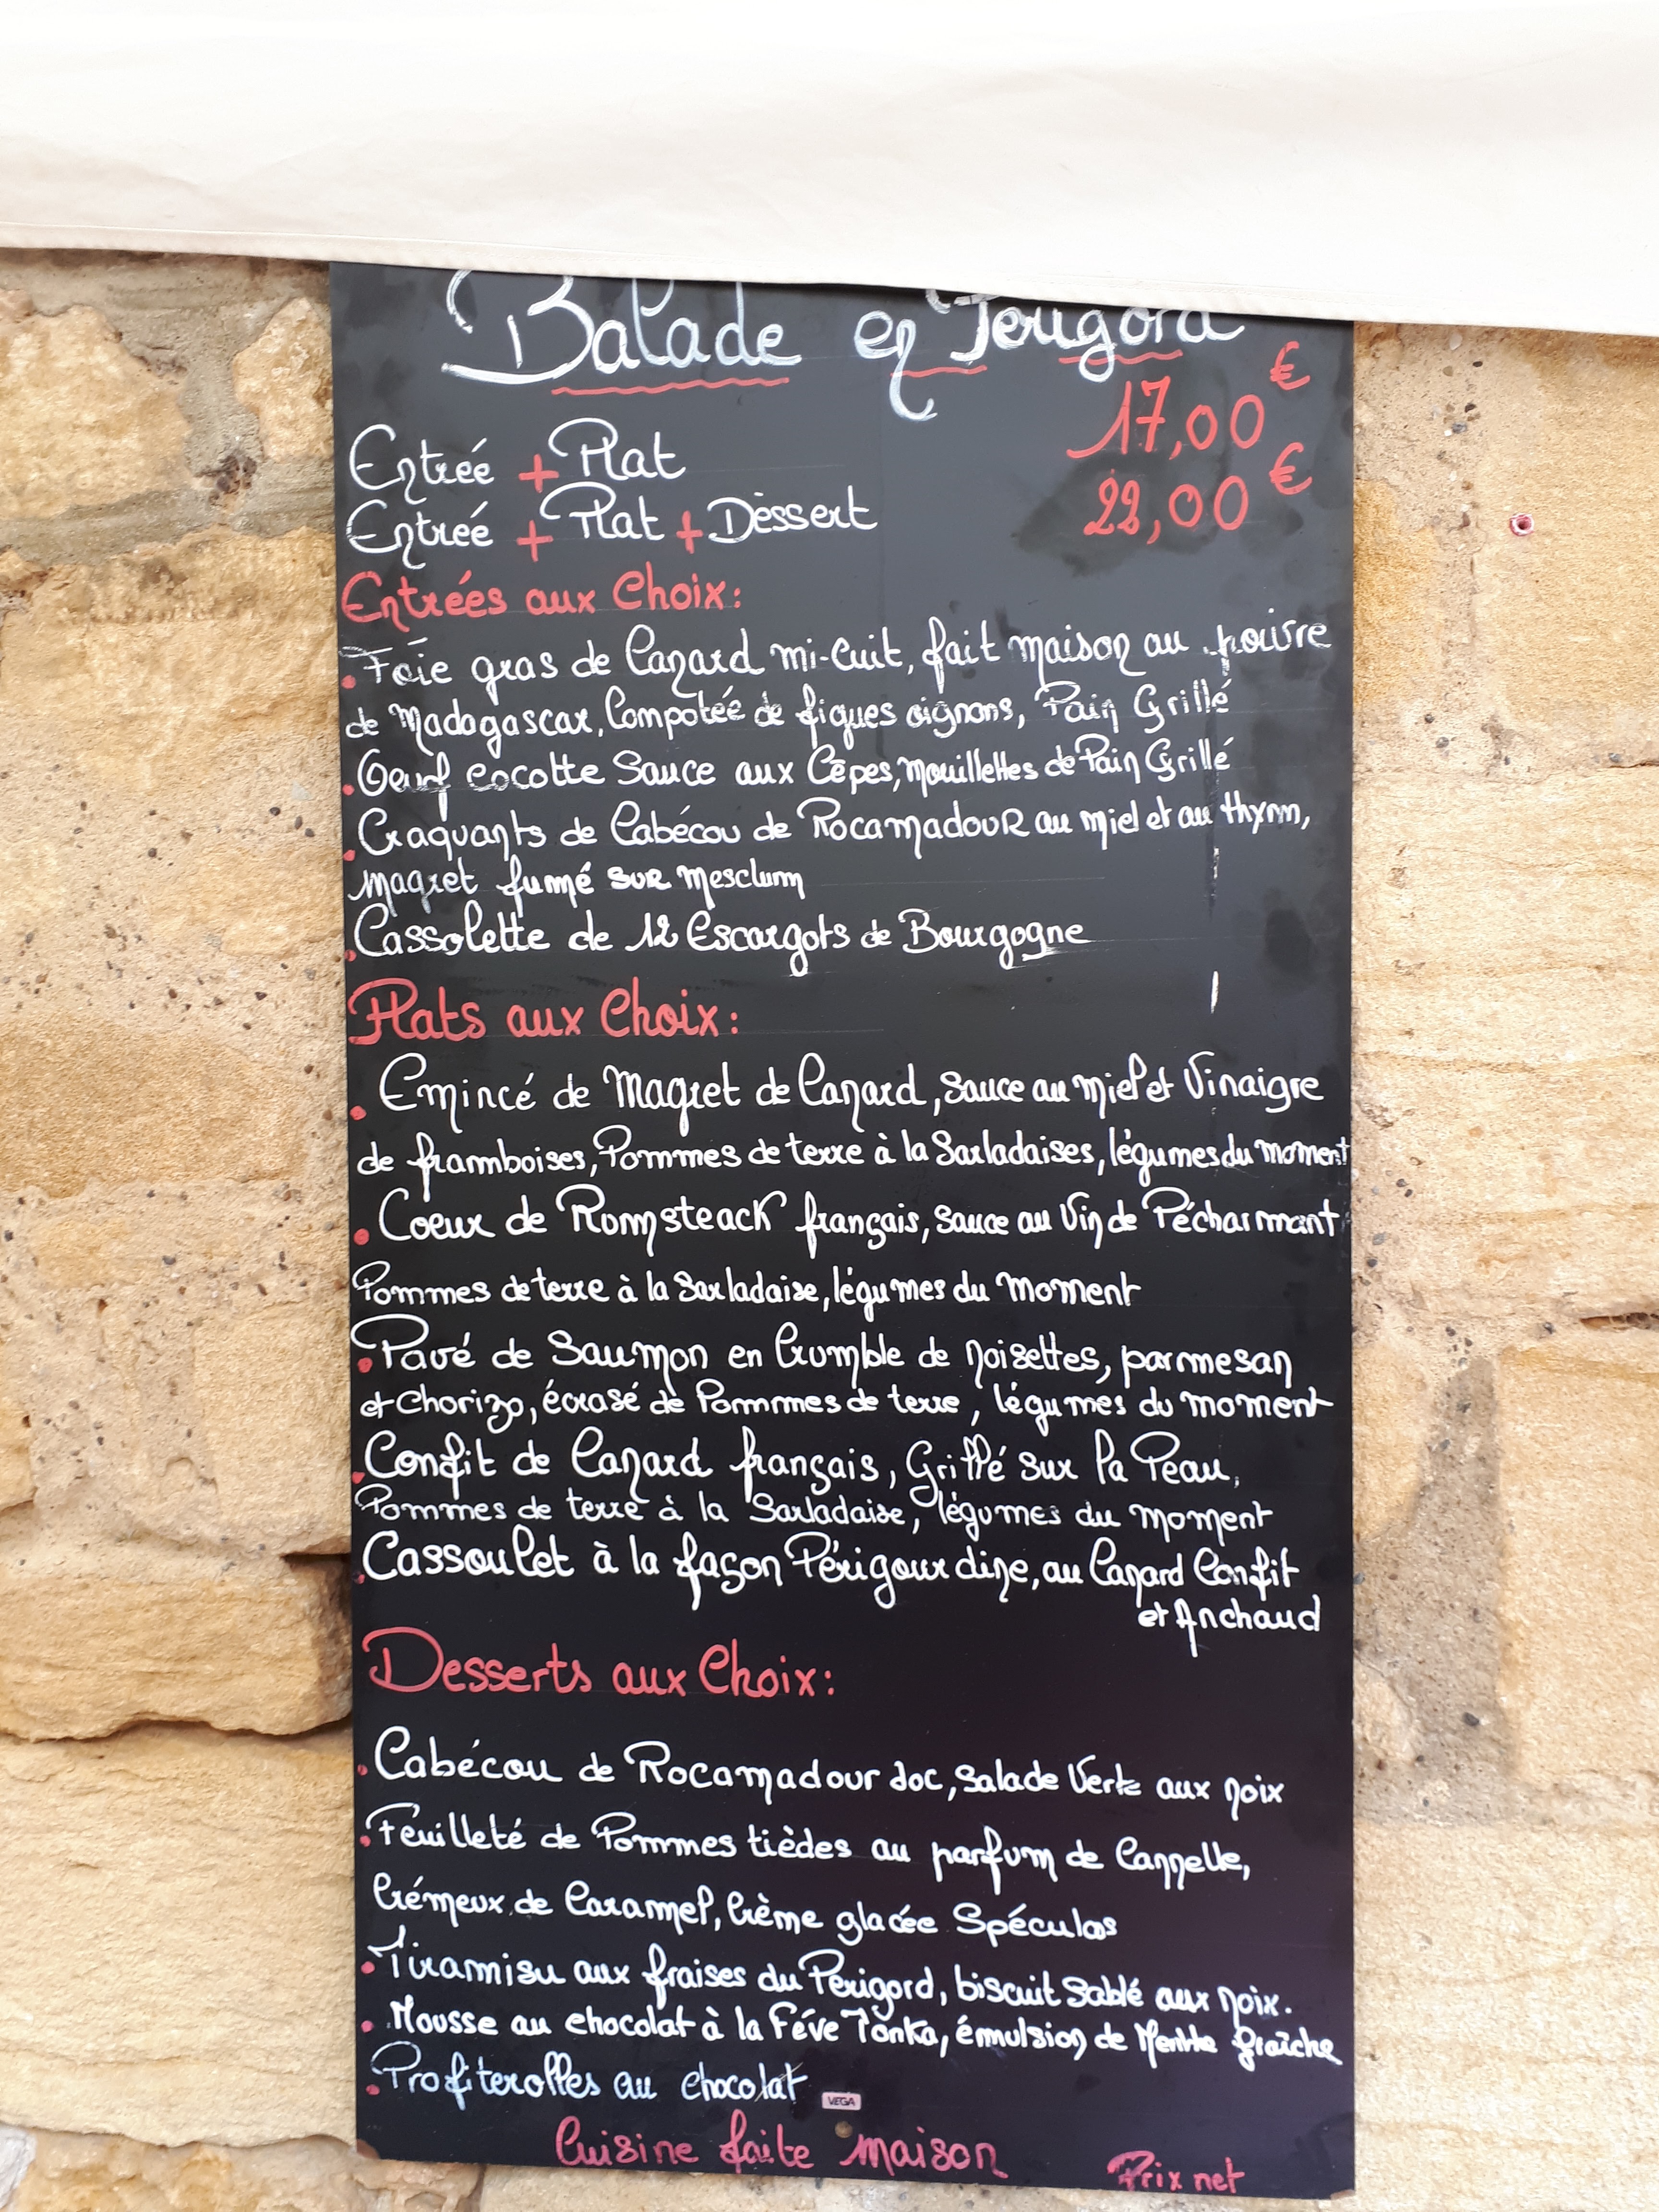 Balade en Périgord
Entrée + Plat 17,00€
Entrée + Plat + Dèssert 22,00€
Entrées aux Choix:
. Foie gras de Canard mi-cuit, fait maison au poivre
de Madagascar, Compotée de figues oignons, Pain Grillé
. Oeuf cocotte Sauce aux Cêpes, Mouillettes de Pain Grillé
. Craquants de Cabécou de Rocamadour au miel et au thym,
magret fumé sur mesclum
. Cassolette de 12 Escargots de Bourgogne
Plats aux Choix:
. Emincé de Magret de Canard, sauce au miel et Vinaigre
de framboises, Pommes de terre à la Sarladaises, légumes du moment
. Coeur de Rumpsteack français, sauce au Vin de Pécharmant
Pommes de terre à la Sarladaise, légumes du moment
. Pavé de Saumon en Crumble de noisettes, parmesan
et chorizo, écrasé de Pommes de terre, légumes du moment
. Confit de Canard français, Grillé sur la Peau,
Pommes de terre à la Sarladaise, légumes du moment
. Cassoulet à la façon Périgourdine, au Canard Confit
et Anchaud
Desserts aux Choix:
. Cabécou de Rocamadour doc, salade Verte aux noix
. Feuilleté de Pommes tièdes au parfum de Cannelle,
Crémeux de Caramel, Crème glacée Spéculos
. Tiramisu aux fraises du Périgord, biscuit Sablé aux noix.
. Mousse au chocolat à la Féve Tonka, émulsion de Menthe fraîche
. Profiterolles au chocolat
VEGA
Cuisine faite maison
Prix net